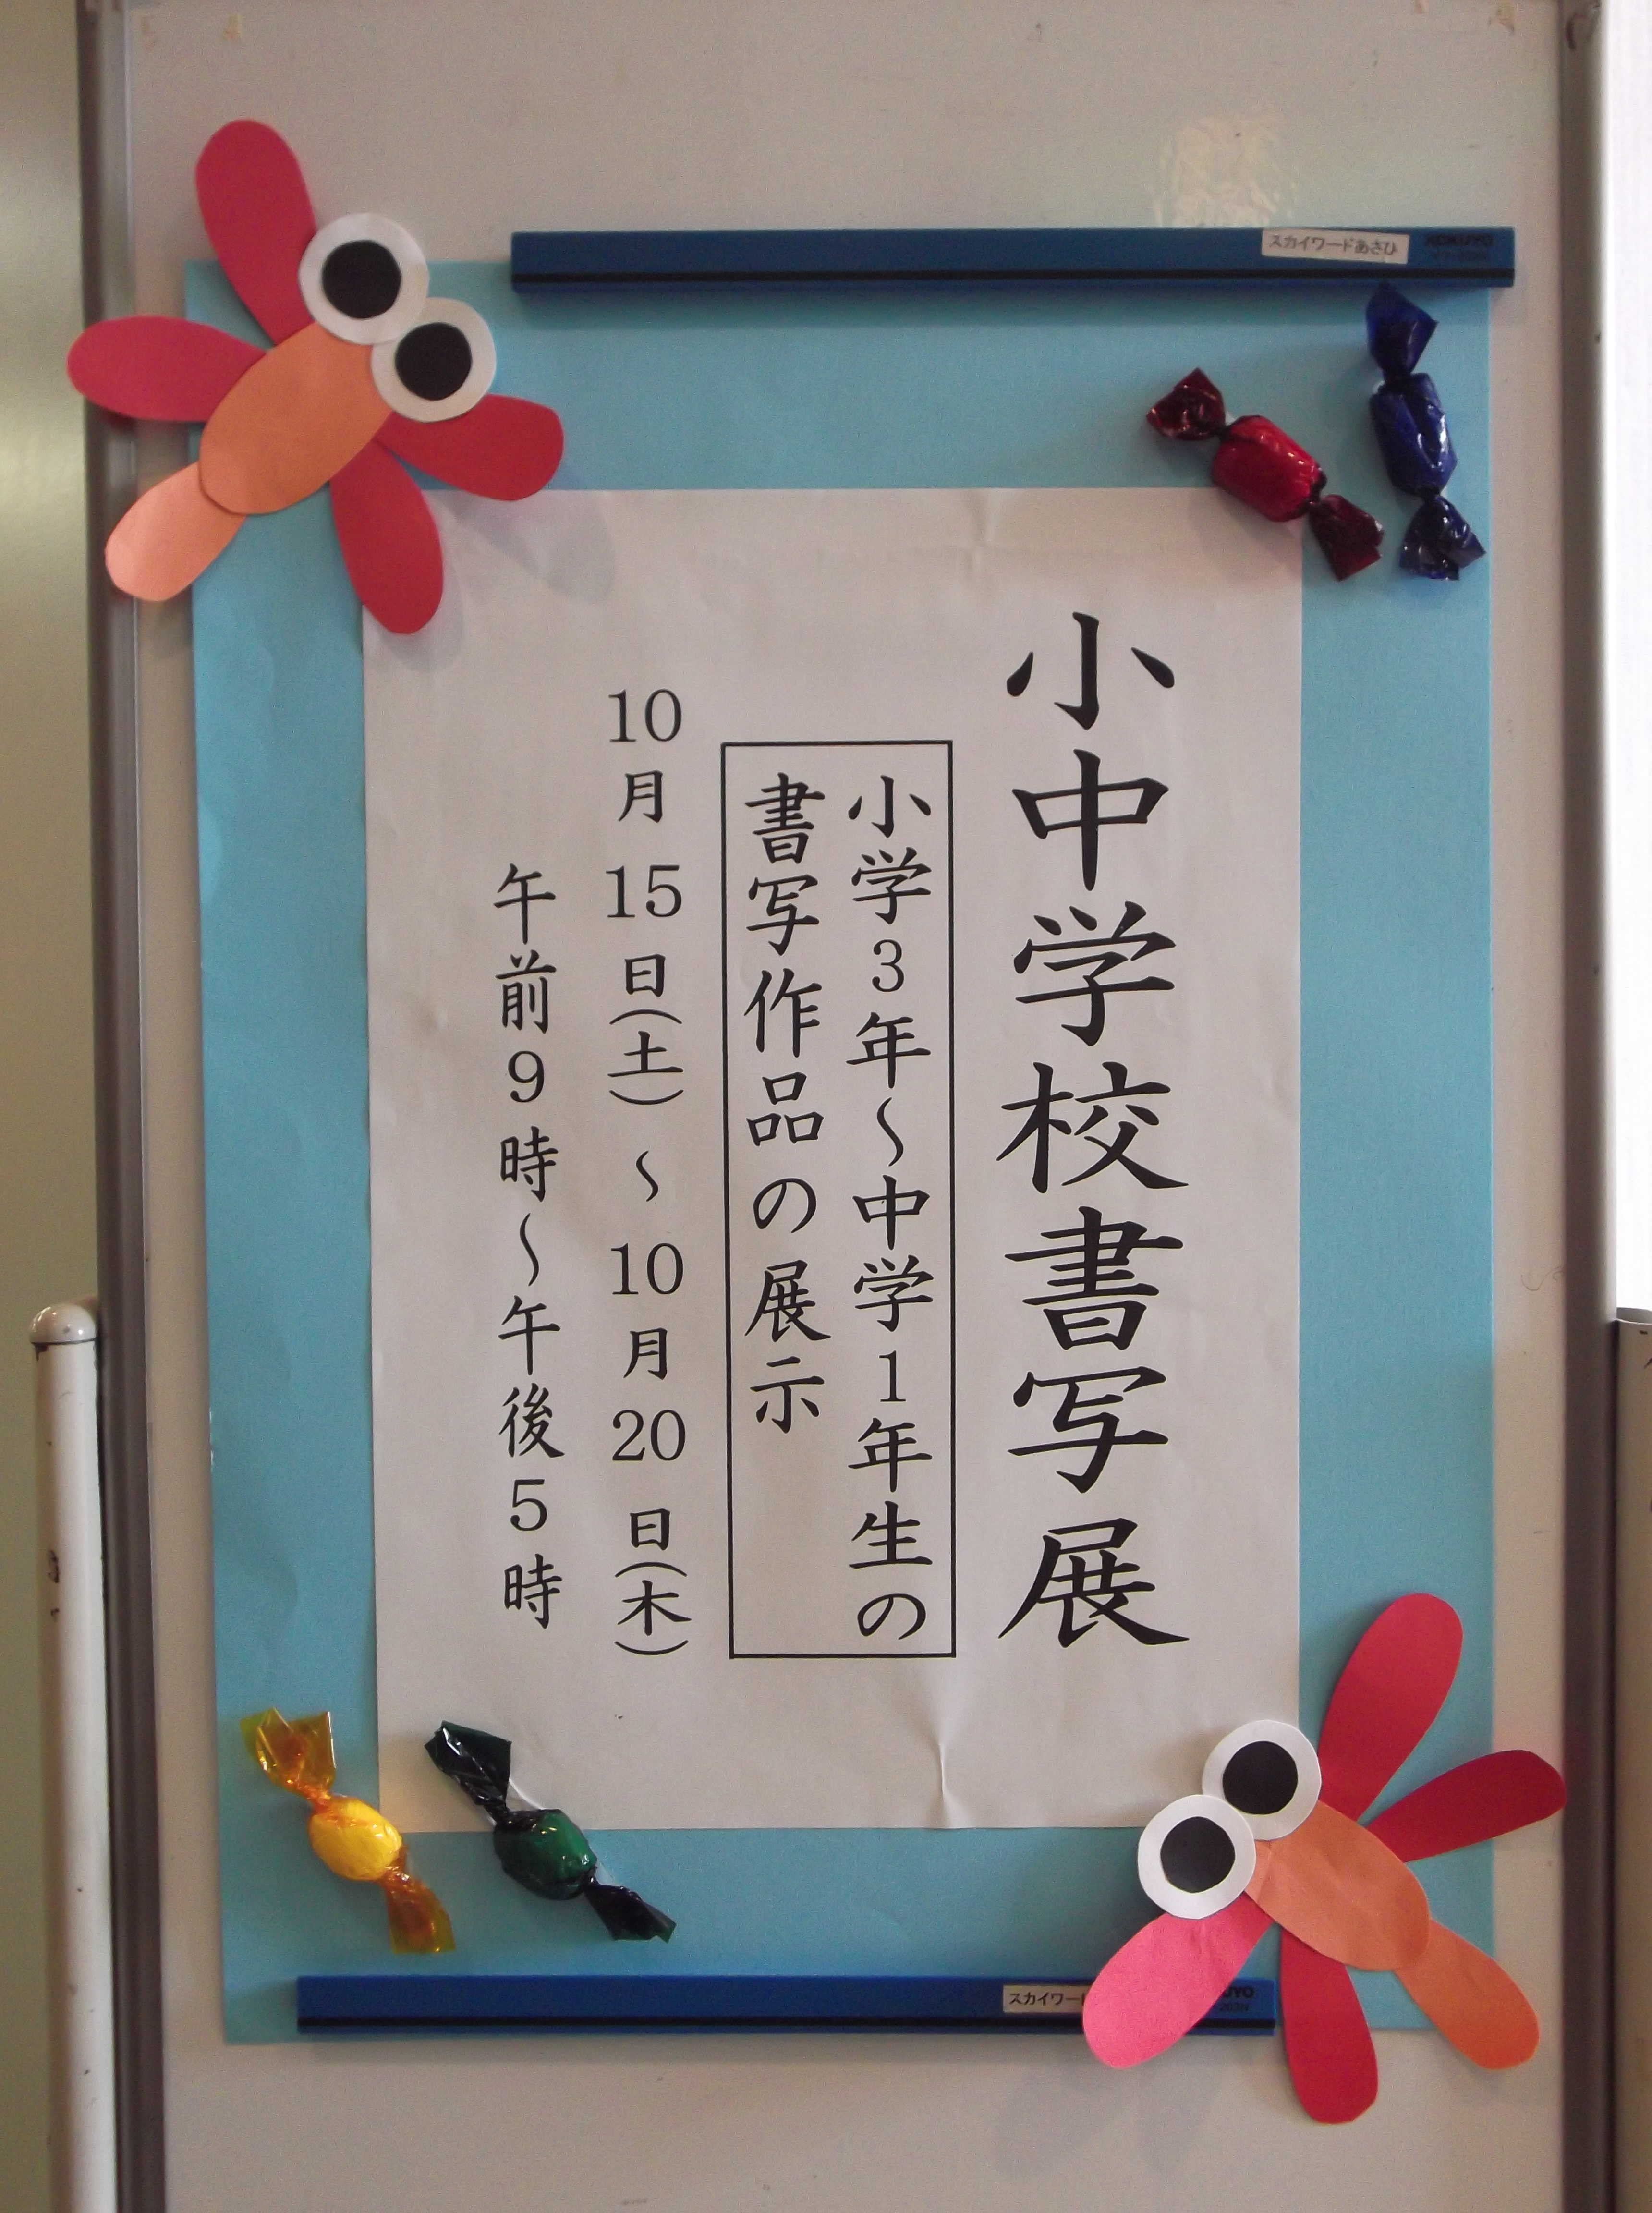 小中学校書写展
小学3年～中学1年生の
書写作品の展示
10月15日(土)～10月20日(木)
午前9時～午後5時
スカイワードあさひ
KOKUYO
スカイワー